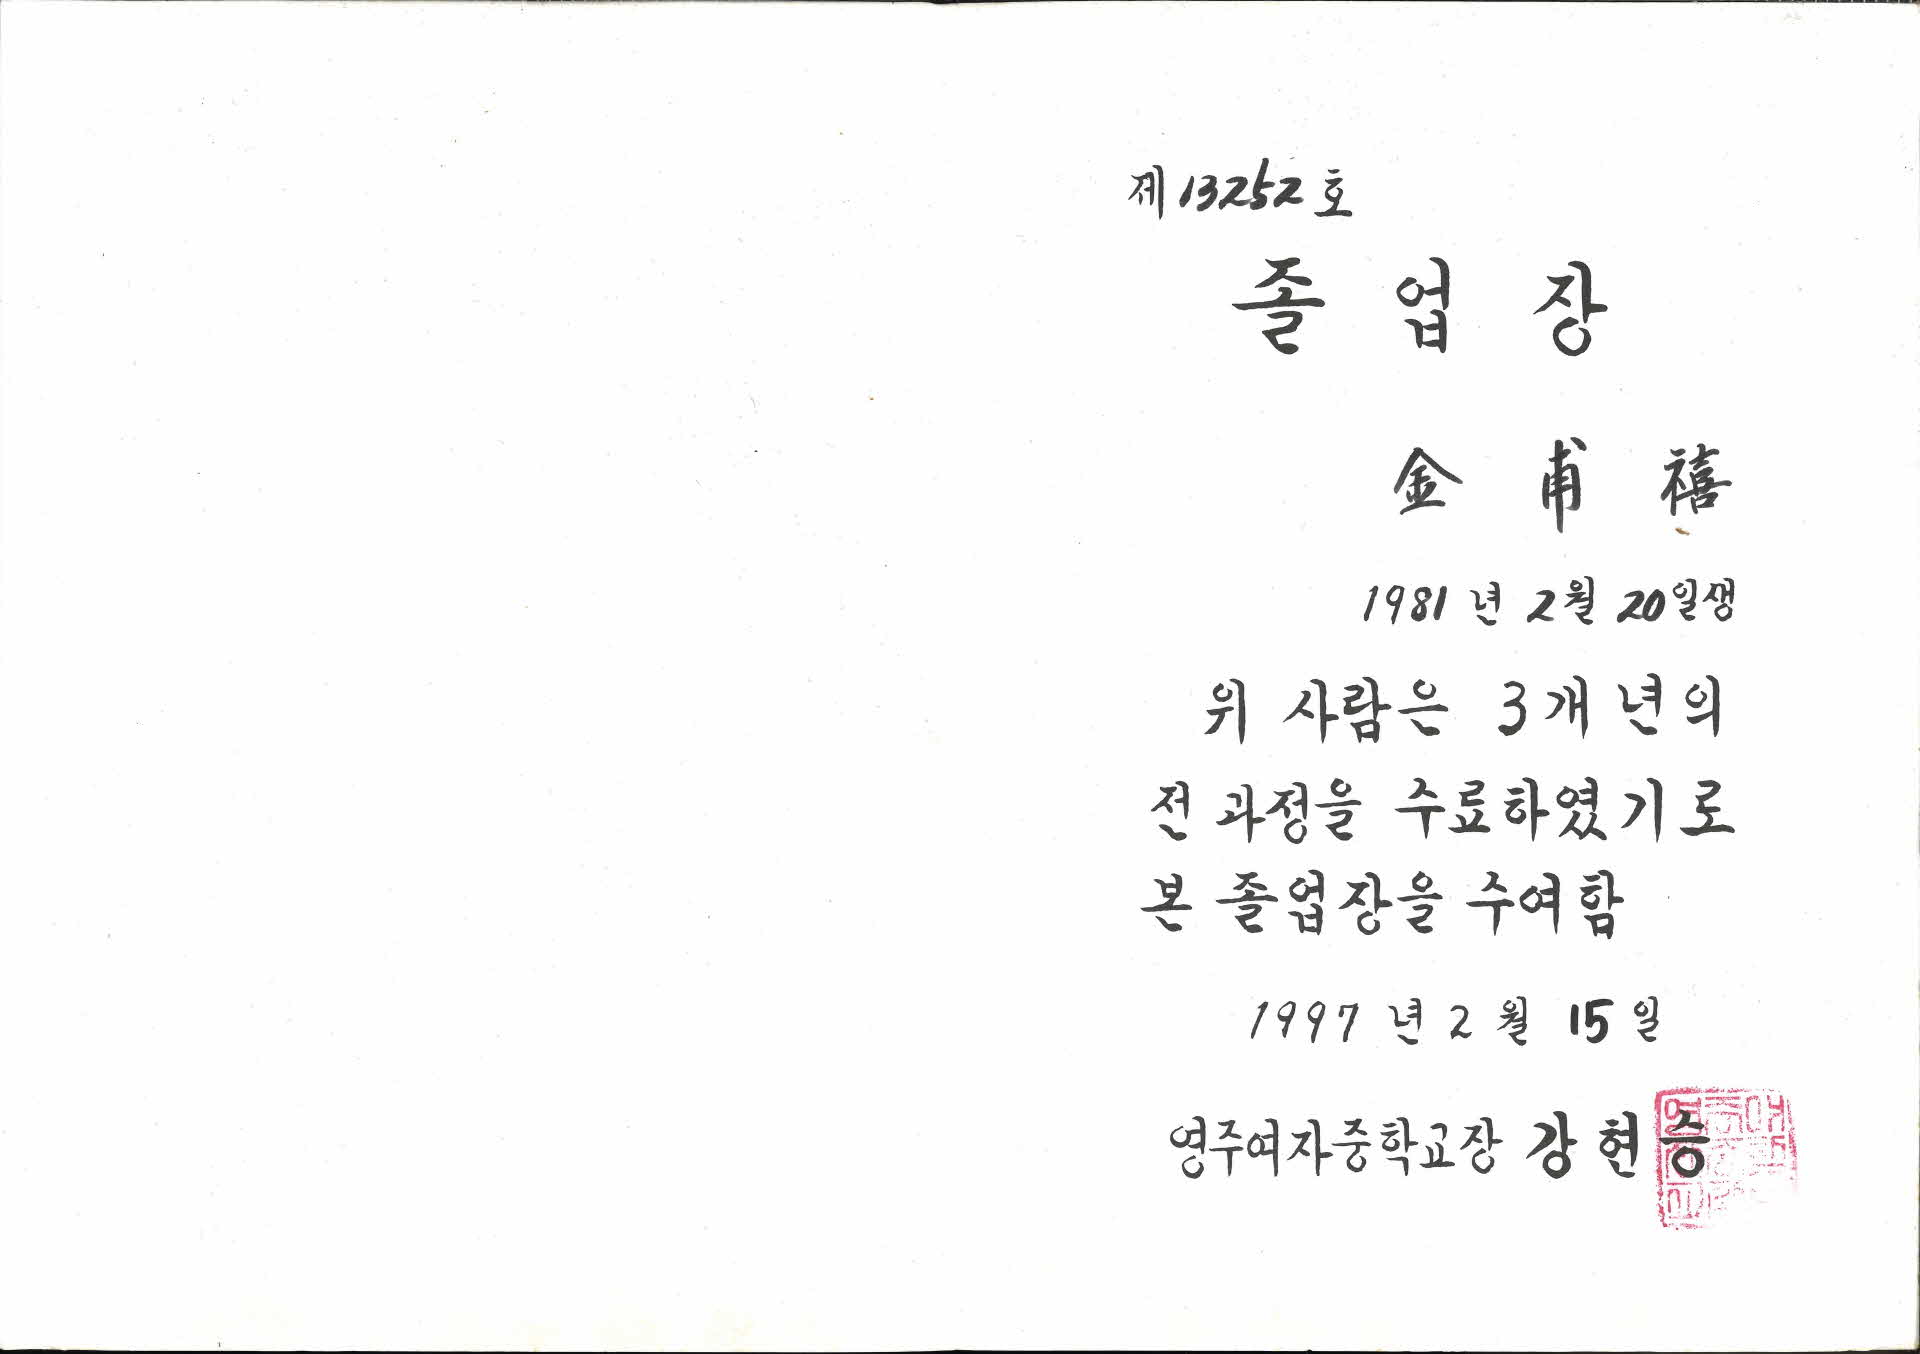 제 13252 호
졸 업 장
金 甫 禧
1981 년 2 월 20 일생
위 사람은 3개년의
전 과정을 수료하였기로
본 졸업장을 수여함
1997 년 2 월 15 일
영주여자중학교장 강 현 승